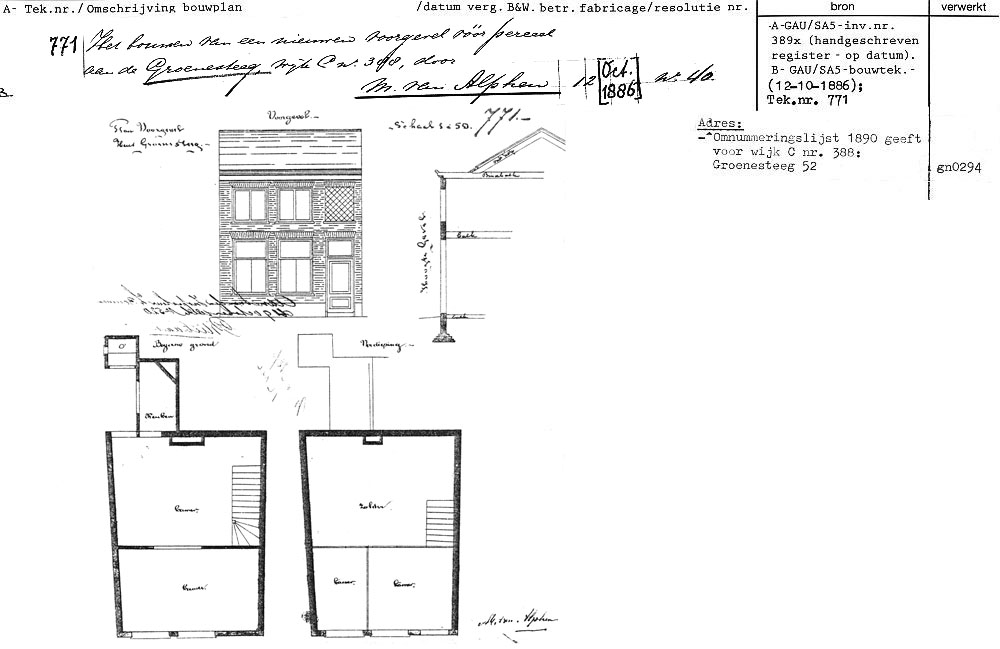 A- Tek.nr./Omschrijving bouwplan /datum verg. B&W. betr. fabricage/resolutie nr. bron verwerkt
771 Het bouwen van een nieuwen voorgevel vóór perceel
aan de Groenesteeg, wijk C nº. 388, door
M. van Alphen 12 [Oct. 1886] nº. 40.
B.
-A-GAU/SA5-inv.nr.
389x (handgeschreven
register - op datum).
B- GAU/SA5-bouwtek.-
(12-10-1886);
Tek.nr. 771
Adres:
-^Omnummeringslijst 1890 geeft
voor wijk C nr. 388:
Groenesteeg 52 gn0294
Plan Voorgevel
Voorgevel
Schaal 1 à 50.
771.-
Hoogte Gevel
Balk
Balk
Begane grond
Verdieping
Keuken
Kamer
Kamer
Zolder
Kamer
Kamer
M. van Alphen